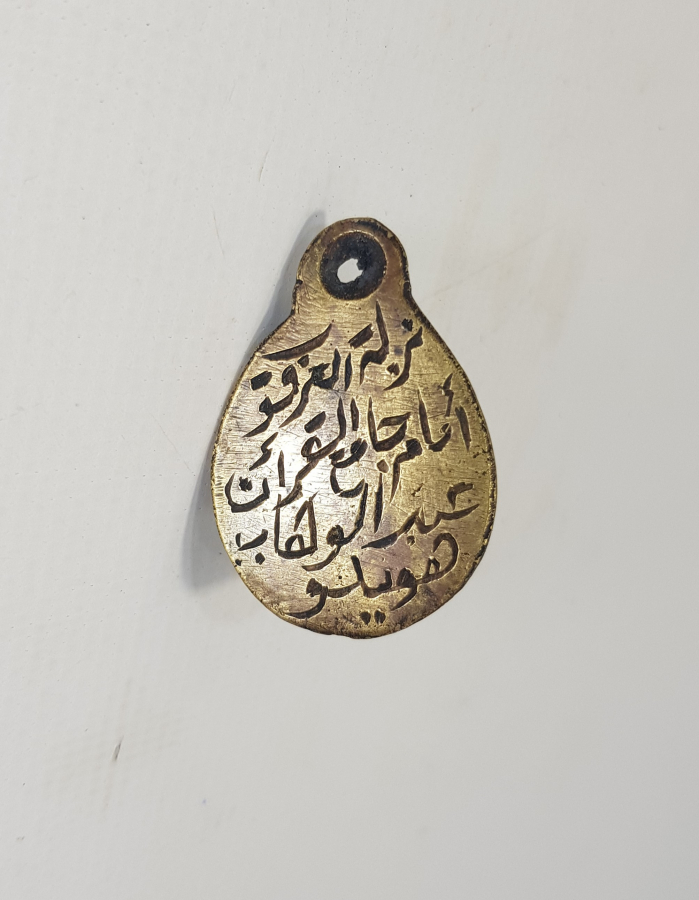 نزلة العزقو
أمام جامع القرآن
عبد الوهاب
هويدو